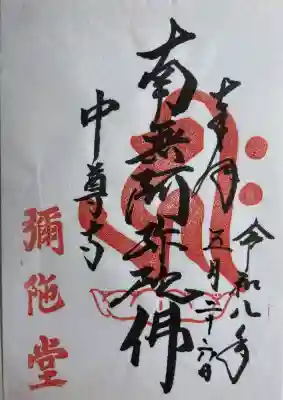 奉拝
令和八年
五月二十六日
南無阿弥陀佛
中尊寺
彌陀堂